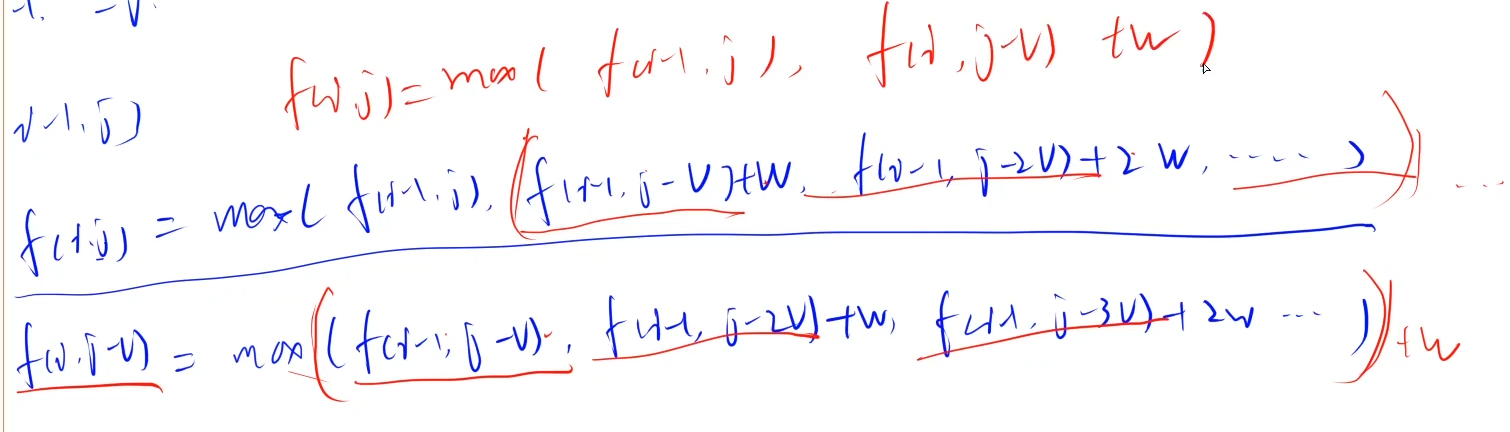 f(i,j)=max( f(i-1,j), f(i,j-v)+w)
i-1,j)
f(i,j) = max( f(i-1,j), (f(i-1,j-v)+w, f(i-1,j-2v)+2w, ......)) ...
f(i,j-v) = max((f(i-1,j-v), f(i-1,j-2v)+w, f(i-1,j-3v)+2w ... ))+w